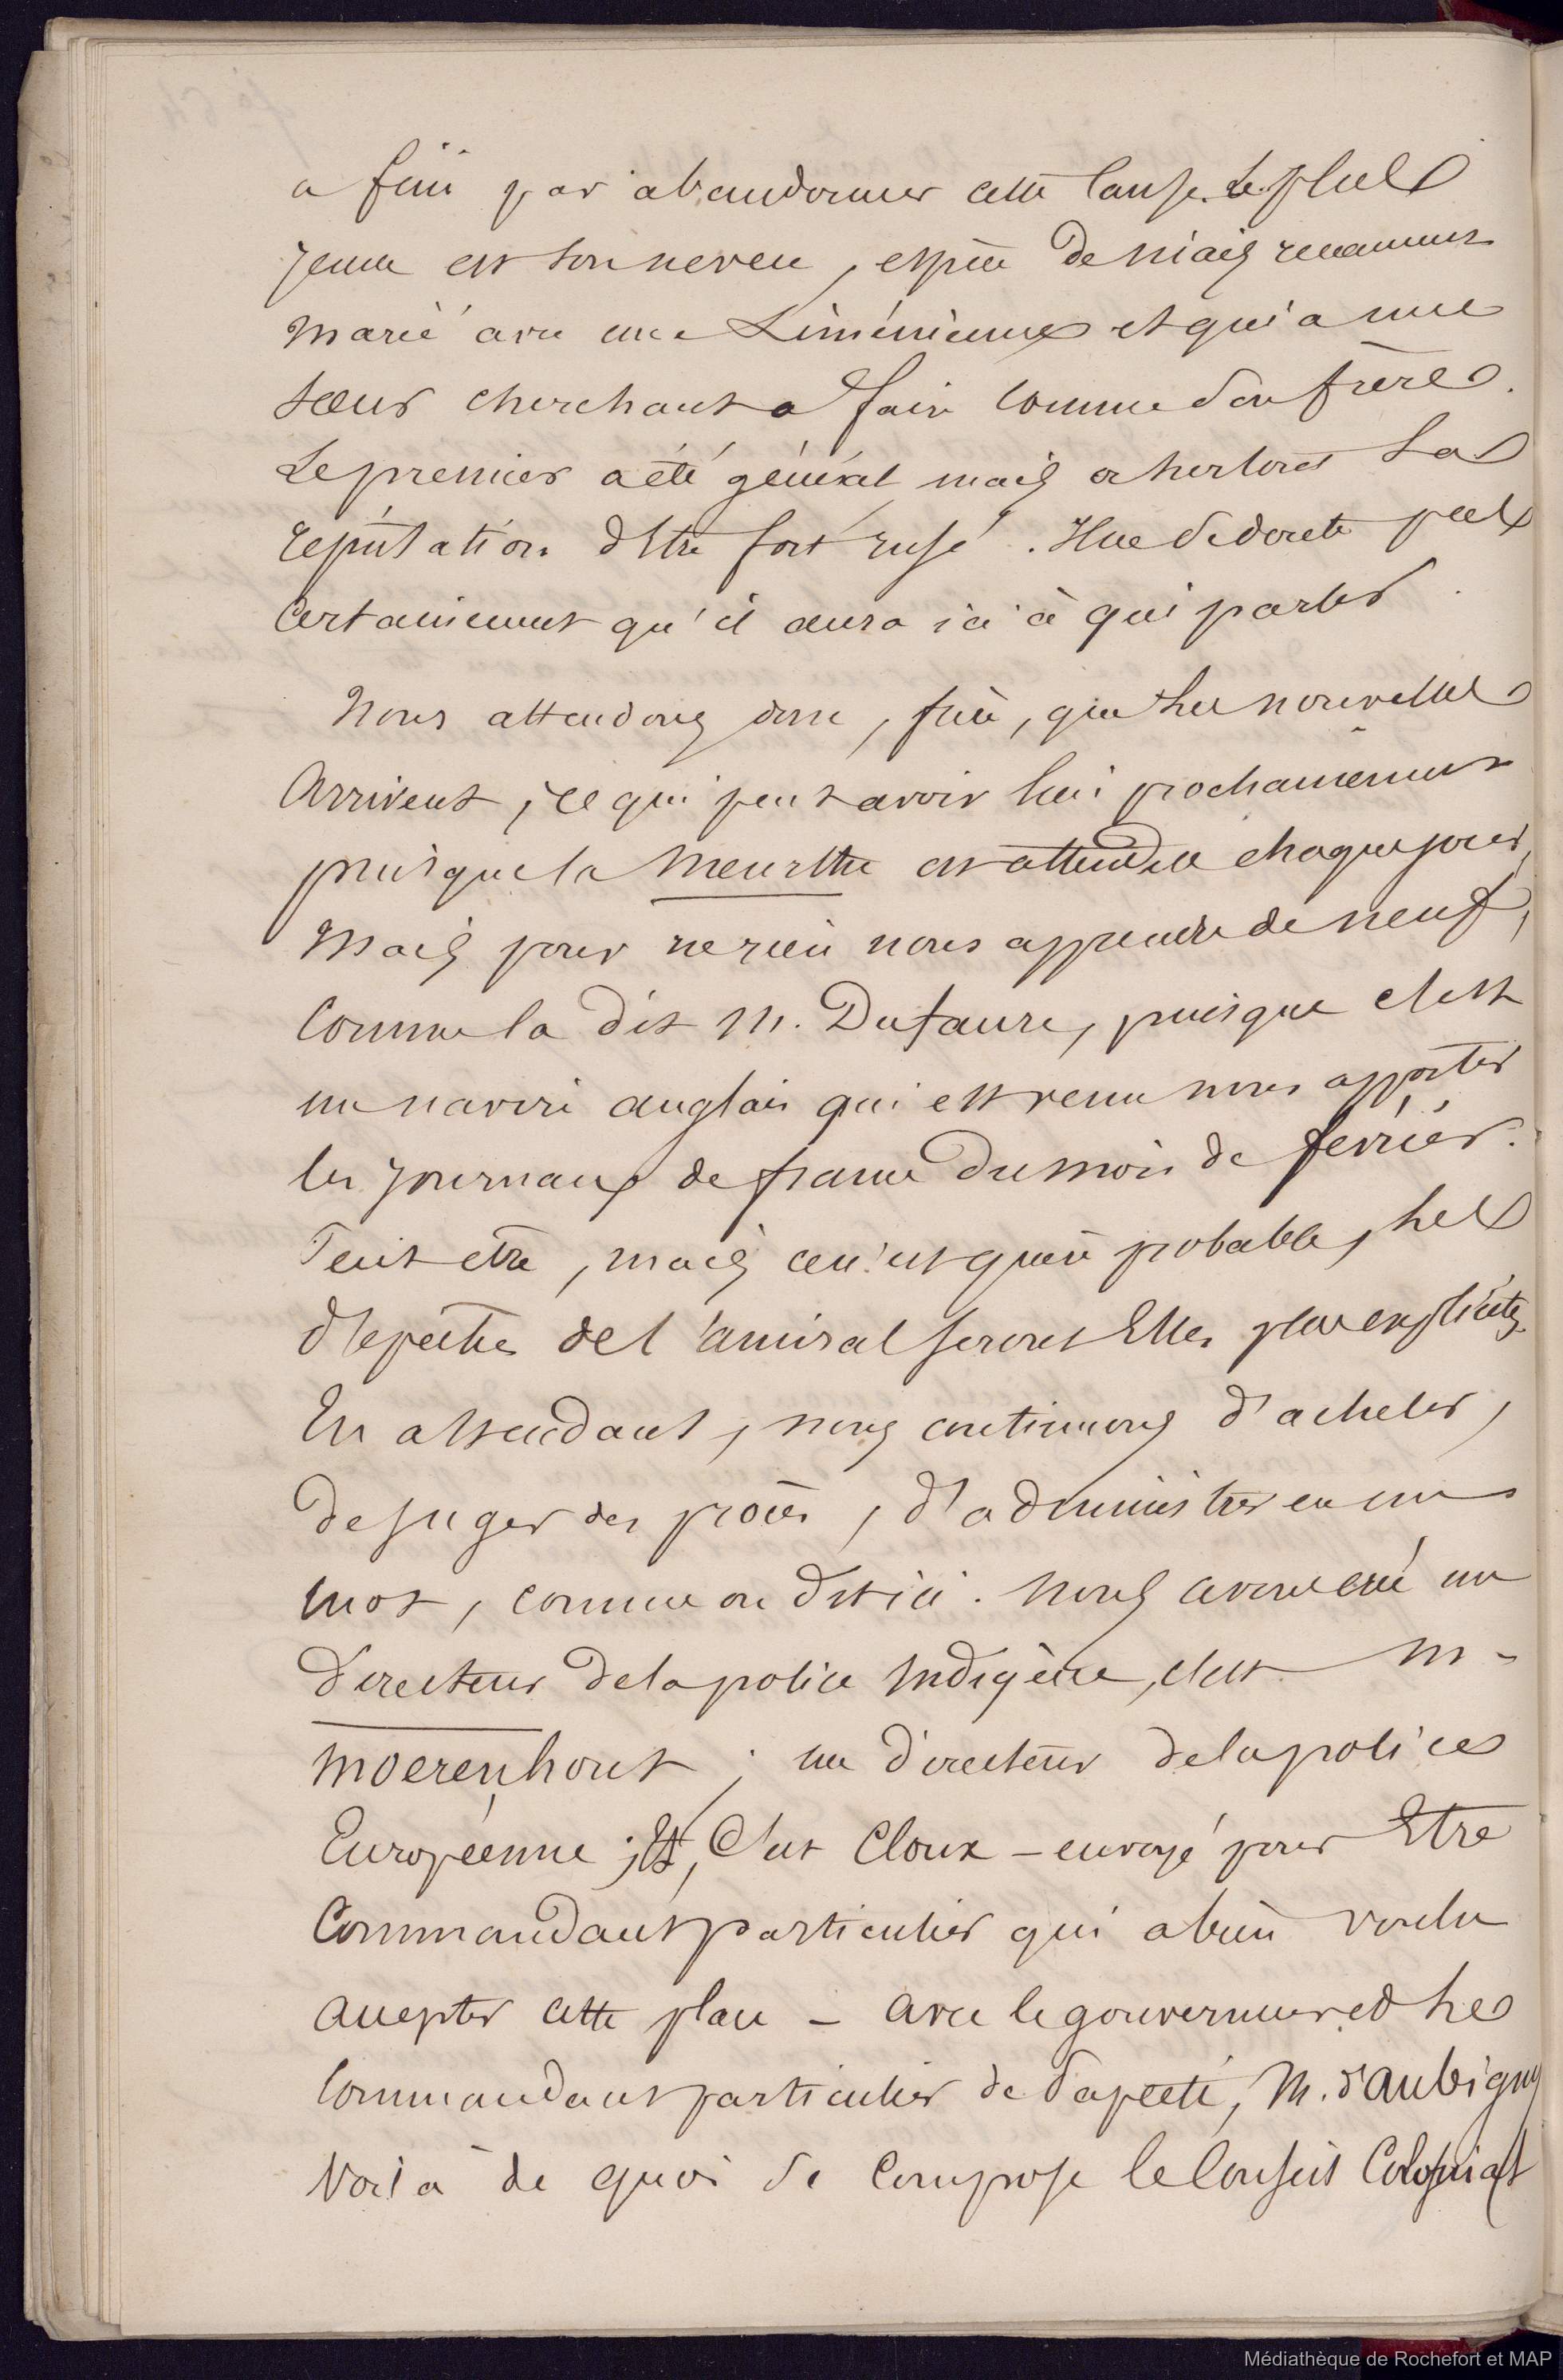 a fini par abandonner cette cause. Le plus
jeune est son neveu, espèce de niais récemment
marié avec une Liménienne et qui a une
sœur cherchant a faire comme son frère.
Le premier a été général, mais a surtout la
réputation d'être fort rusé. Il ne se doute pas
certainement qu'il aura ici à qui parler.
Nous attendons donc, frère, que les nouvelles
arrivent, ce qui peut avoir lieu prochainement
puisque la Meurthe est attendue chaque jour,
mais pour ne rien nous apprendre de neuf,
comme la dit M. Dufaure, puisque c'est
un navire anglais qui est venu nous apporter
les journaux de france du mois de fevrier.
Peut etre, mais ce n'est guère probable, les
dépêches de l'amiral seront Elles plus explicites.
En attendant, nous continuons d'acheter,
de juger des procès, d'administrer en un
mot, comme on dit ici. Nous avons créé un
directeur de la police Indigène, c'est M.
Moerenhout ; un directeur de la police
Européenne ; Et, C'est Cloux – envoyé pour Etre
Commandant particulier qui a bien voulu
accepter cette place – avec le gouverneur et le
Commandant particulier de Papeete, M. d'Aubigny
Voila de quoi se compose le Conseil Colonial
Médiathèque de Rochefort et MAP